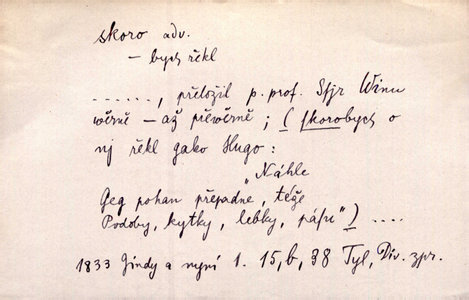 skoro adv.
— bych řekl
. . . . . . , přeložil p. prof. Sfjr Winu
wěrně — až přewěrně; ( skorobych o
nj řekl gako Hugo:
"Náhle
Geg pohan přepadne, téže
Podoby, kytky, lebky, páşu") ....
1833 Jindy a nyní 1. 15, b, 38 Tyl, Div. zpr.